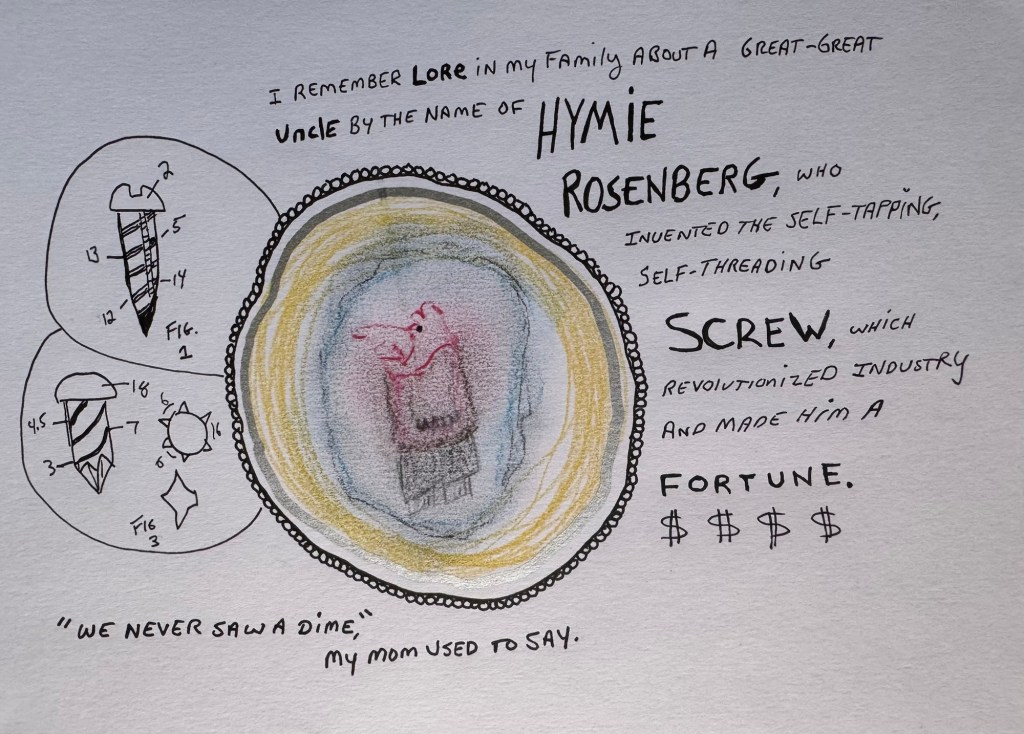 I REMEMBER LORE IN MY FAMILY ABOUT A GREAT-GREAT
UNCLE BY THE NAME OF HYMIE
ROSENBERG, WHO
INVENTED THE SELF-TAPPING,
SELF-THREADING
SCREW, WHICH
REVOLUTIONIZED INDUSTRY
AND MADE HIM A
FORTUNE.
$ $ $ $
2
5
13
14
12
FIG.
1
18
4,5
7
3
6
16
6
FIG
3
"WE NEVER SAW A DIME,"
MY MOM USED TO SAY.